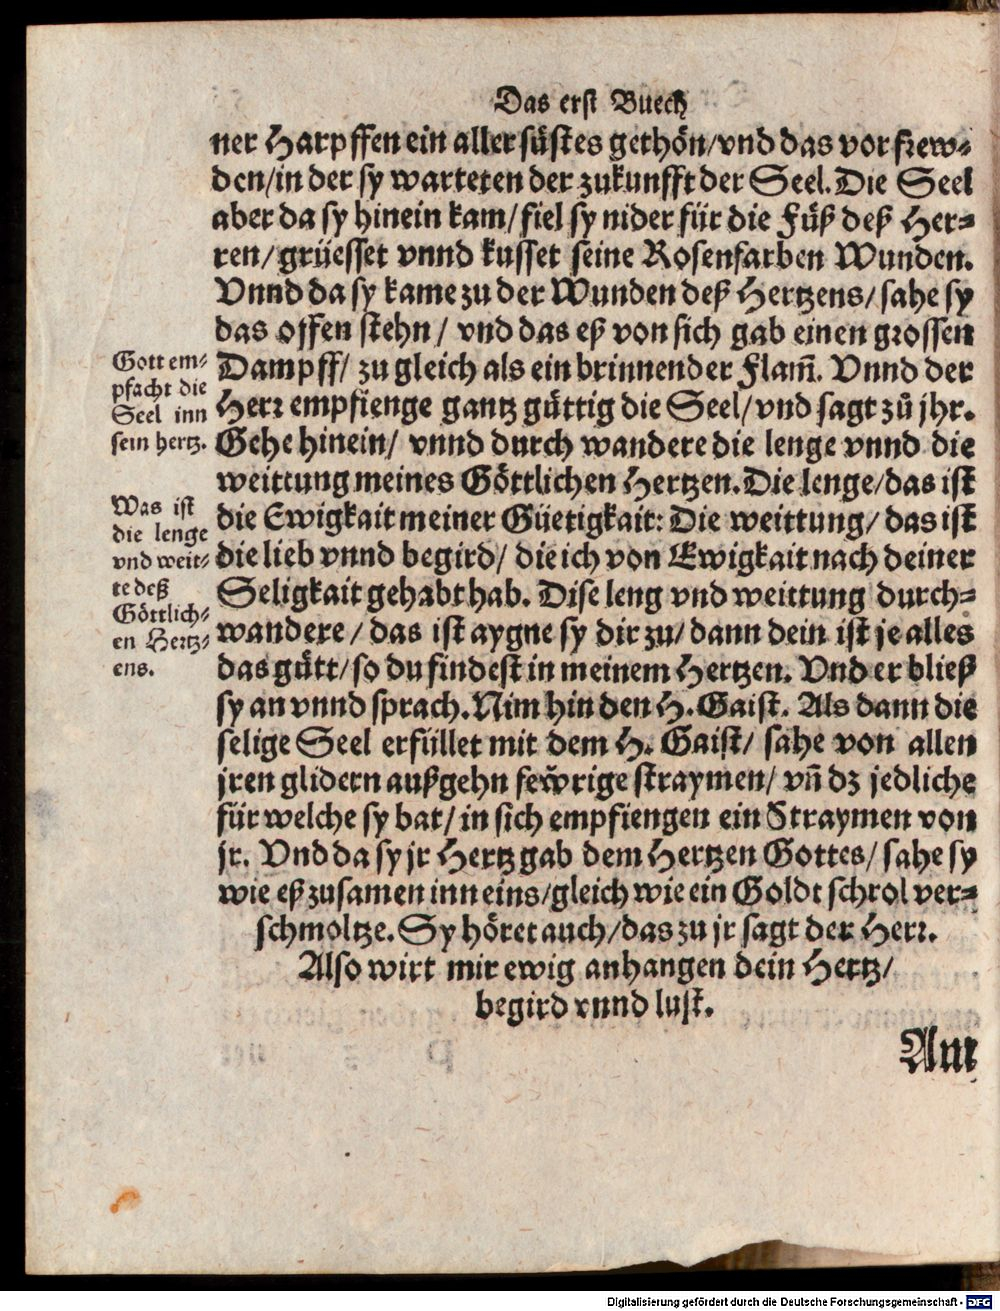 Das erst Buech
ner Harpffen ein aller süstes gethön/vnd das vor frew-
den/in der sy warteten der zukunfft der Seel. Die Seel
aber da sy hinein kam/fiel sy nider für die Füß deß Her-
ren/grüesset vnnd kusset seine Rosenfarben Wunden.
Vnnd da sy kame zu der Wunden deß Hertzens/sahe sy
das offen stehn/ vnd das eß von sich gab einen grossen
Dampff/ zu gleich als ein brinnender Flam̃. Vnnd der
Herr empfienge gantz güttig die Seel/vnd sagt zů jhr.
Gehe hinein/ vnnd durch wandere die lenge vnnd die
weittung meines Göttlichen Hertzen. Die lenge/das ist
die Ewigkait meiner Güetigkait: Die weittung/ das ist
die lieb vnnd begird/ die ich von Ewigkait nach deiner
Seligkait gehabt hab. Dise leng vnd weittung durch-
wandere/ das ist aygne sy dir zu/ dann dein ist je alles
das gůtt/so du findest in meinem Hertzen. Vnd er bließ
sy an vnnd sprach. Nim hin den H. Gaist. Als dann die
selige Seel erfüllet mit dem H. Gaist/ sahe von allen
jren glidern außgehn fewrige straymen/ vñ dz jedliche
für welche sy bat/ in sich empfiengen ein Straymen von
jr. Vnd da sy jr Hertz gab dem Hertzen Gottes/ sahe sy
wie eß zusamen inn eins/gleich wie ein Goldt schrol ver-
schmoltze. Sy höret auch/das zu jr sagt der Herr.
Also wirt mir ewig anhangen dein Hertz/
begird vnnd lust.
Gott em-
pfacht die
Seel inn
sein hertz.
Was ist
die lenge
vnd weit-
te deß
Göttlich-
en Hertz-
ens.
Digitalisierung gefördert durch die Deutsche Forschungsgemeinschaft - DFG